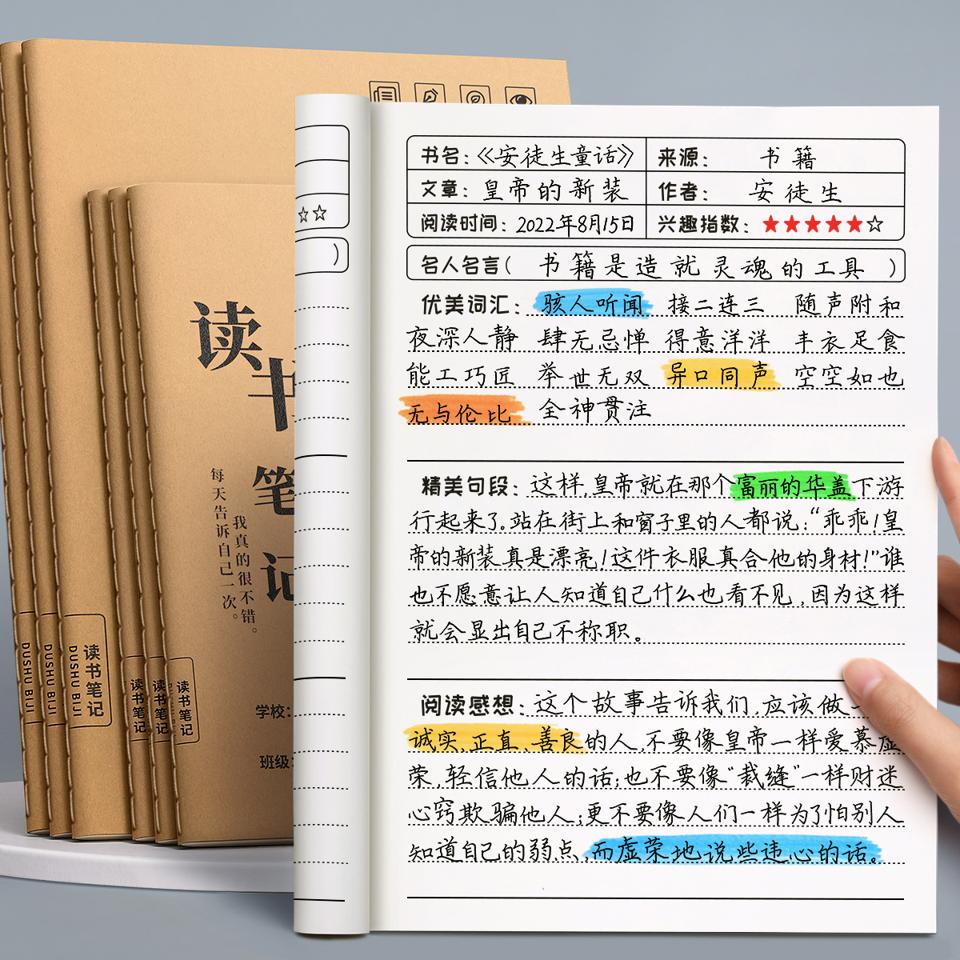 读书笔记
每天告诉自己一次。
我真的很不错。
学校:
班级:
读书笔记
DUSHU BIJI
DUSHU BIJI
DUSHU BIJI
读书笔记
读书笔记
读书笔记
☆☆
)
书名:《安徒生童话》 来源: 书籍
文章: 皇帝的新装 作者: 安徒生
阅读时间: 2022年8月15日 兴趣指数: ★★★★★☆
名人名言( 书籍是造就灵魂的工具 )
优美词汇: 骇人听闻 接二连三 随声附和
夜深人静 肆无忌惮 得意洋洋 丰衣足食
能工巧匠 举世无双 异口同声 空空如也
无与伦比 全神贯注
精美句段: 这样,皇帝就在那个富丽的华盖下游
行起来了。站在街上和窗子里的人都说:“乖乖!皇
帝的新装真是漂亮!这件衣服真合他的身材!”谁
也不愿意让人知道自己什么也看不见,因为这样
就会显出自己不称职。
阅读感想: 这个故事告诉我们,应该做一
诚实、正直、善良的人,不要像皇帝一样爱慕虚
荣,轻信他人的话;也不要像“裁缝”一样财迷
心窍欺骗他人;更不要像人们一样为了怕别人
知道自己的弱点,而虚荣地说些违心的话。